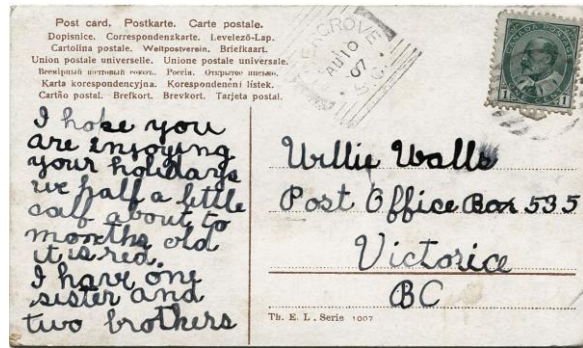 Post card. Postkarte. Carte postale.
Dopisnice. Correspondenzkarte. Levelező-Lap.
Cartolina postale. Weltpostverein. Briefkaart.
Union postale universelle. Unione postale universale.
Karta korespondencyjna. Korespondenční lístek.
Cartão postal. Brefkort. Brevkort. Tarjeta postal.
GROVE
AU 10
07
B.C.
CANADA POSTAGE
1 1
I hope you
are enjoying
your holidays
we half a little
calf about to
months old
it is red.
I have one
sister and
two brothers
Willie Walls
Post Office Box 535
Victoria
BC
Th. E. L. Serie 1007